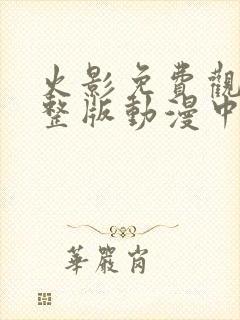 火影免費觀
整版動漫中
華嚴肖